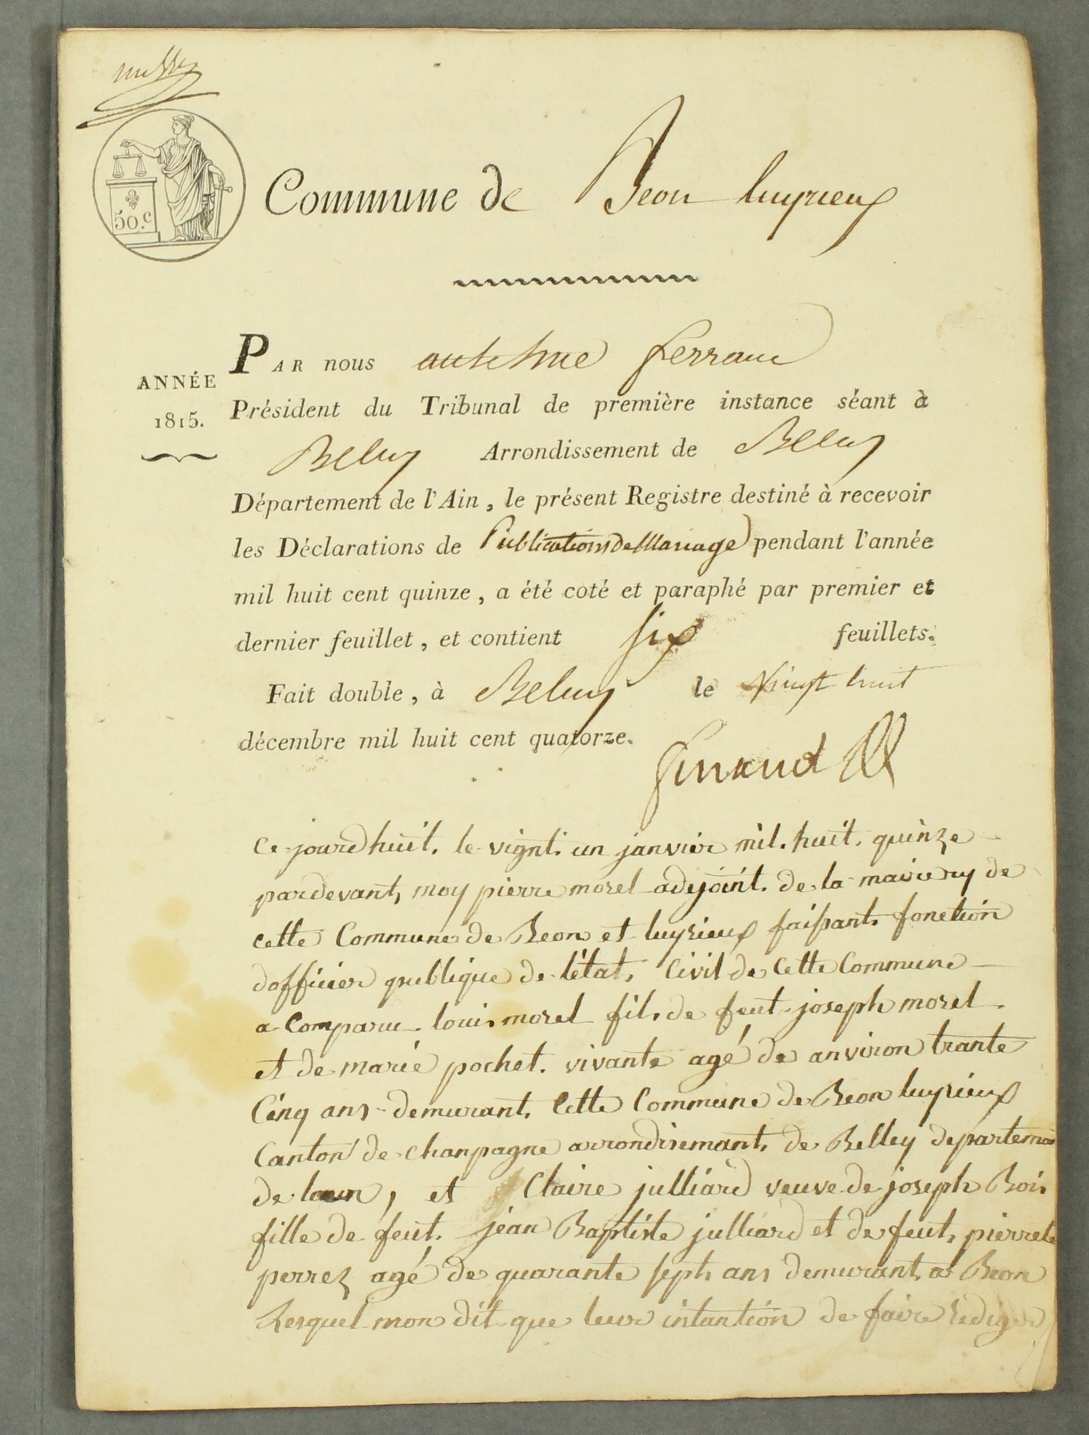 50.c
Commune de Beon luyrieux
ANNÉE
1815.
PAR nous anthelme ferrand
Président du Tribunal de première instance séant à
Belley Arrondissement de Belley
Département de l'Ain, le présent Registre destiné à recevoir
les Déclarations de Publications De Mariage pendant l'année
mil huit cent quinze, a été coté et paraphé par premier et
dernier feuillet, et contient six feuillets.
Fait double, à Belley le vingt huit
décembre mil huit cent quatorze.
ce jourdhuit. le vignt. un janvier mil. huit. quinze
pardevant, moy pierre morel adejoint. de la mairiery de
cette Commune de Beon et luyrieux faissant fonction
dofficier queblique de létat, Civil de Cette Commune
a Comparu. louis morel fils de feut joseph morel
et de marie pochet. vivante agé de anviron trante
Cinq ans demurant. Cette Commune de Beon luyrieux
Canton de chanpagne arrondisemant, de Belley departemant
de, et Claire julliard veuve de joseph Bois
fille de feut. jean Baptiste julliard et de feut, pierrete
perrez agé de quarante sept ans demurant a Beon
Lesquel mon dit que leur intantion de faire rediger